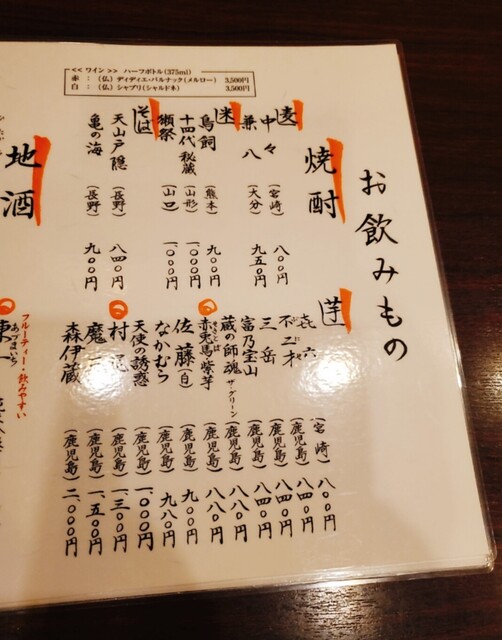 << ワイン >> ハーフボトル(375ml)
赤 : (仏) ディディエ・パルナック(メルロー) 3,500円
白 : (仏) シャブリ(シャルドネ) 3,500円
お飲みもの
焼酎
麦
中々 (宮崎) 八〇〇円
兼八 (大分) 九五〇円
米
鳥飼 (熊本) 九〇〇円
十四代秘蔵 (山形) 一、〇〇〇円
獺祭 (山口) 一、〇〇〇円
そば
天山戸隠 (長野) 八四〇円
亀の海 (長野) 九〇〇円
芋
㐂六 (宮崎) 八〇〇円
不二才 (鹿児島) 八四〇円
三岳 (鹿児島) 八四〇円
富乃宝山 (鹿児島) 八四〇円
蔵の師魂 ザ・グリーン (鹿児島) 八八〇円
赤兎馬紫芋 (鹿児島) 八八〇円
佐藤(白) (鹿児島) 九〇〇円
なかむら (鹿児島) 九八〇円
天使の誘惑 (鹿児島) 一、〇〇〇円
村尾 (鹿児島) 一、三〇〇円
魔王 (鹿児島) 一、五〇〇円
森伊蔵 (鹿児島) 二、〇〇〇円
地酒
フルーティー・飲みやすい
東一
あづまいち